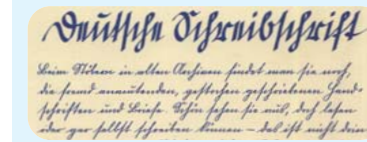 Deutsche Schreibschrift
Beim Stöbern in alten Archiven findet man sie noch,
die fremd anmutenden, gestochen geschriebenen Hand-
schriften und Briefe. Schön sehen sie aus, doch lesen
oder gar selbst schreiben können – das ist nicht dein